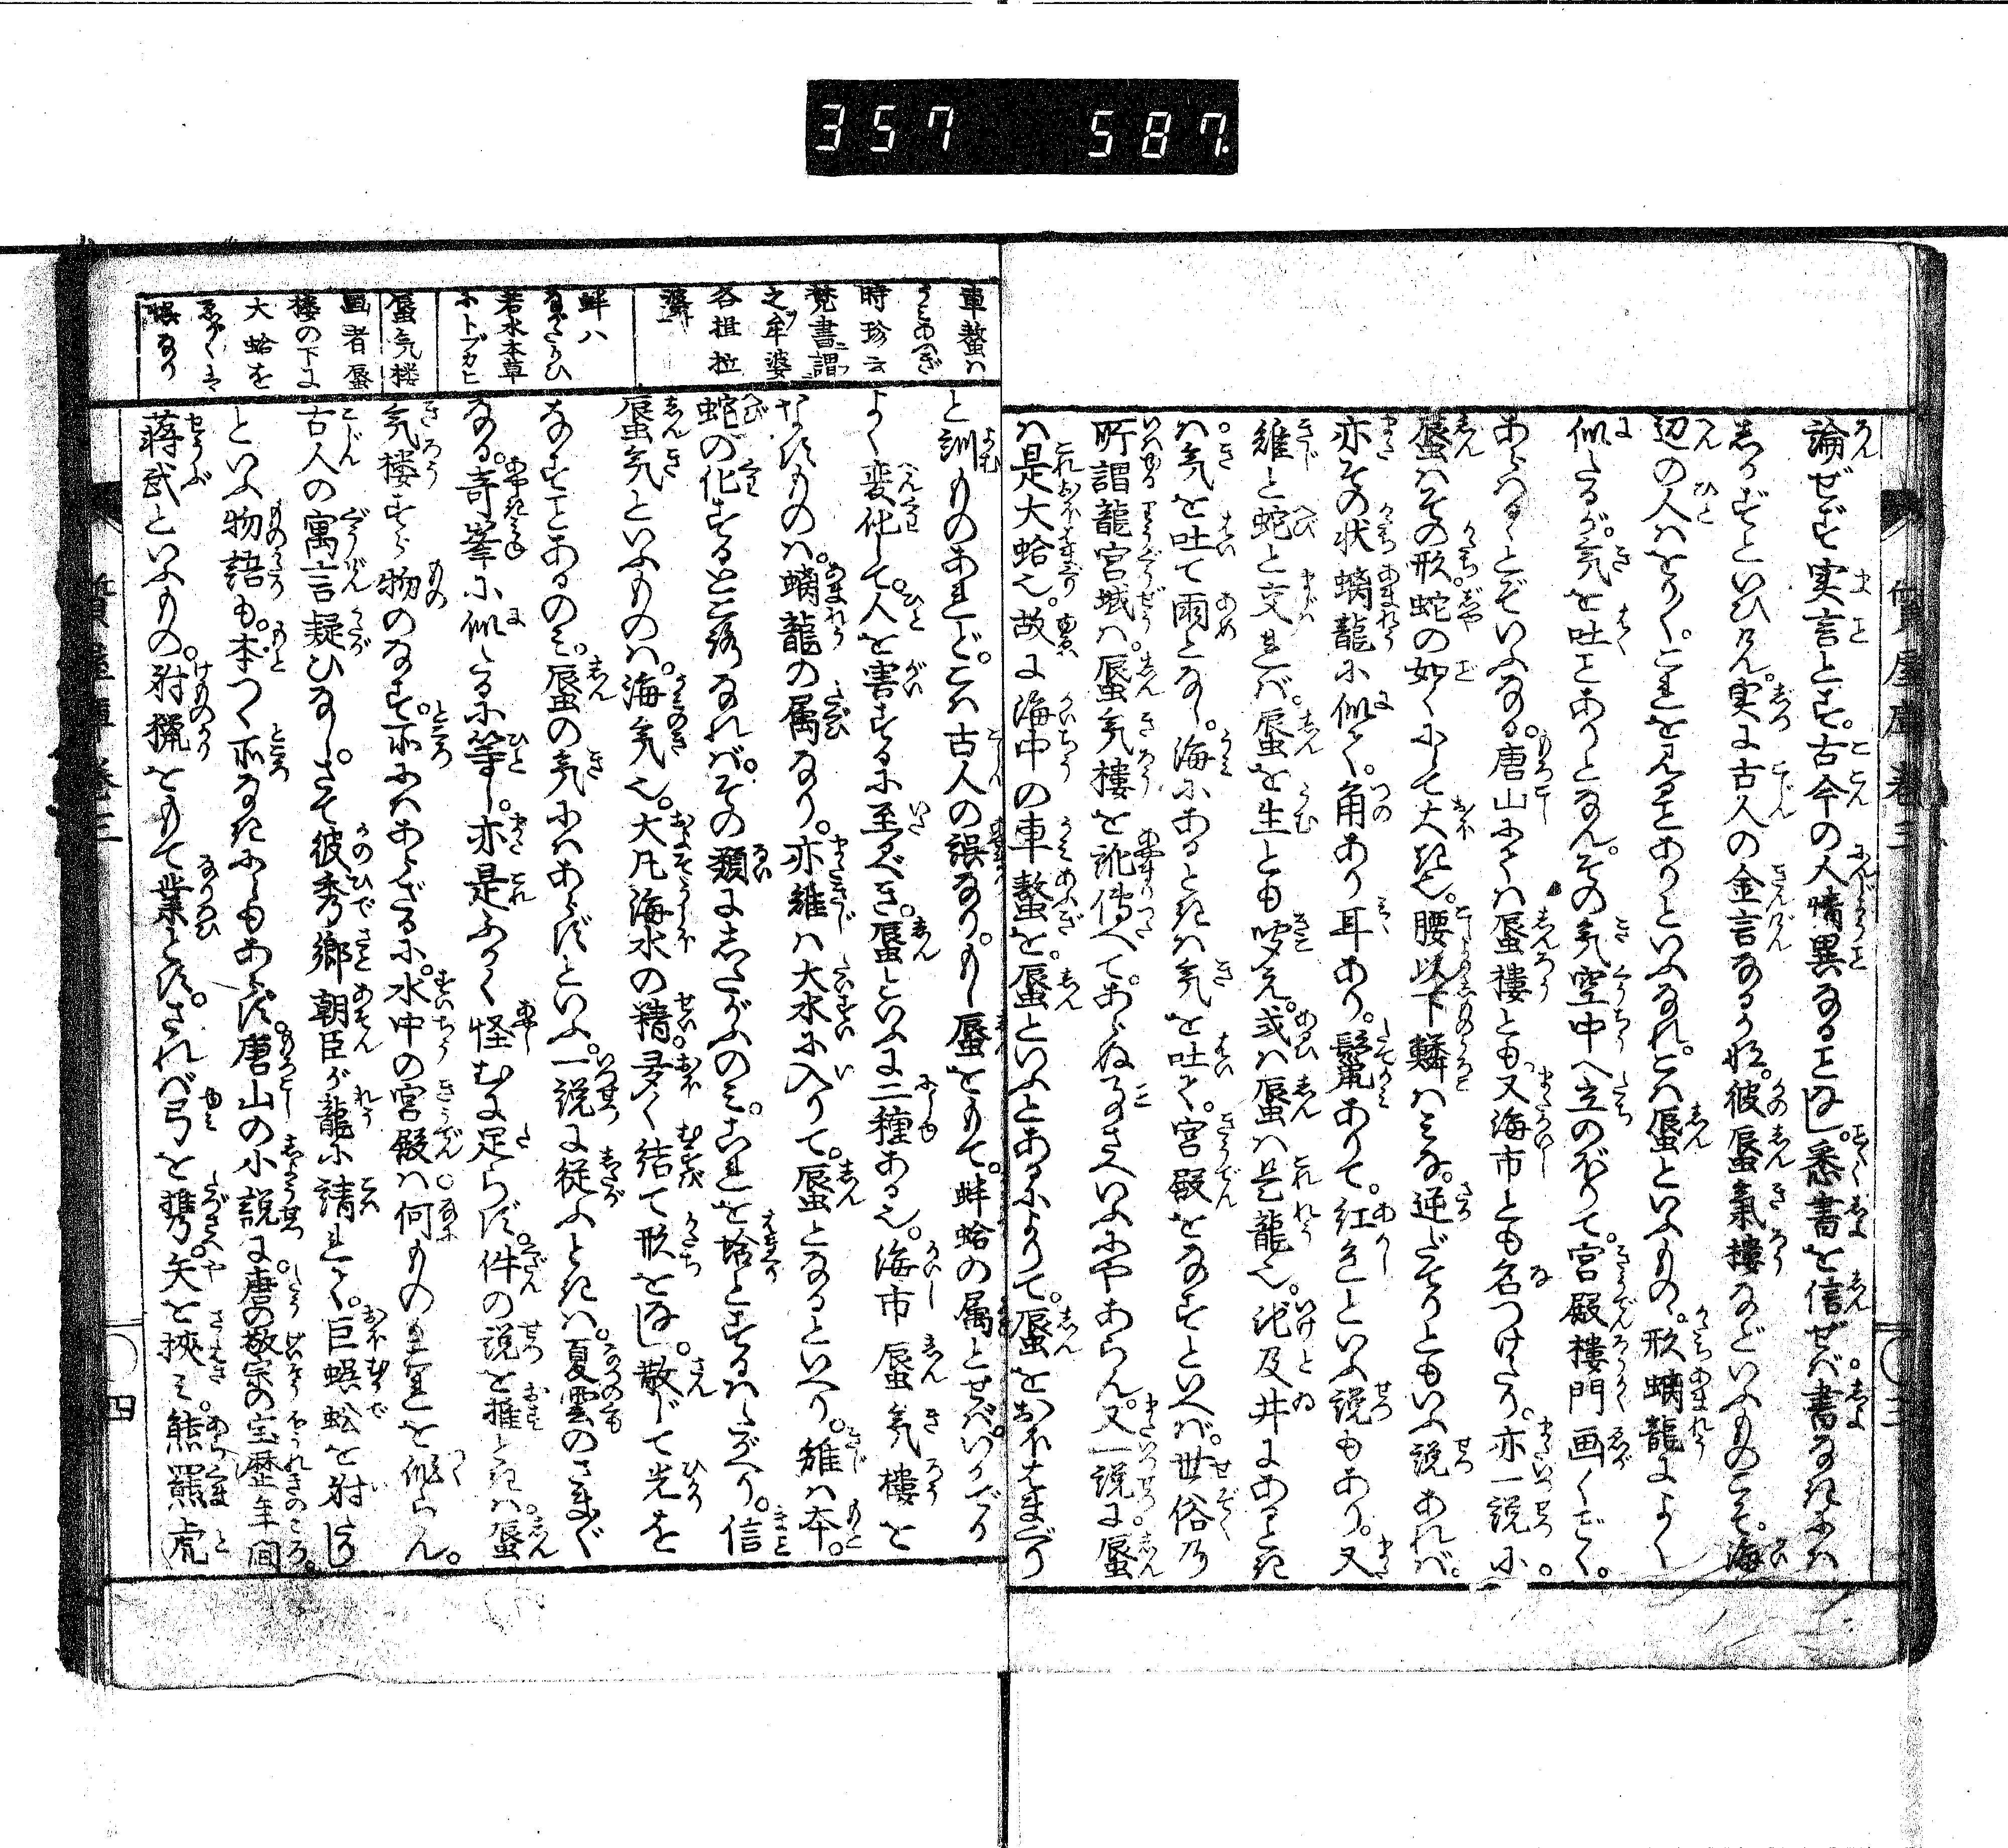 357 587.
質屋庫 巻三
論ぜず実言とす。古今の人情異なることなし。悉書を信ぜば。書なきにハ
しかずといひけん。実に古人の金言なるかな。彼蜃氣樓などいふものこそ。海
辺の人ハをり〳〵。これを見ることありといふなれ。こハ蜃といふもの。形螭龍によく
似たるが。気を吐ことありとなん。その気空中へ立のぼりて。宮殿樓門画くごとく。
あらハるゝとぞいふなる。唐山にてハ蜃樓とも又海市とも名つけたり。亦一説に。
蜃ハその形蛇の如くにして大きし。腰以下鱗ハみな。逆だてりともいふ説あれバ。
亦その状螭龍に似て。角あり耳あり。鬣ありて。紅色といふ説もあり。又
雉と蛇と交れバ。蜃を生とも唱え。或ハ蜃ハ是龍也。池及井にあるとき
ハ。気を吐て雨となし。海にあるときハ気を吐て。宮殿をなすといへバ。世俗乃
所謂龍宮城ハ。蜃気樓を訛傳へて。あらぬ事さへいふにやあらん。又一説に蜃
ハ是大蛤也。故に海中の車螯を。蜃といふとあるによりて。蜃をおほはまぐり
三
車螯ハ
うみあふぎ
時珍云
梵書謂
之牟婆
各揖拉
婆
蚌ハ
ながたがひ
若水本草
ニトブカヒ
蜃気楼
画者蜃
楼の下に
大蛤を
ゑがくは
誤なり
と訓ものあれど。こハ古人の誤なり。もし蜃をもて。蚌蛤の属とせバ。いかでか
よく変化して。人を害するに至るべき。蜃といふに二種ある也。海市蜃気樓を
なすものハ。螭龍の属なり。亦雉ハ大水に入りて。蜃となるといへり。雉ハ本。
蛇の化するところなれバ。その類にしたがふのミ。これを蛤とするハたがへり。信
蜃気といふものハ。海気也。大凡海水の精多く結て形をなし。散じて光を
なすことあるのミ。蜃の気にハあらずといふ。一説に従ふときハ。夏雲のさまざま
なる。奇峯に似たるに等し。亦是ふかく怪むに足らず。件の説を推ときハ。蜃
気樓すら物のなす。所にハあらざるに。水中の宮殿ハ何ものの主宰を似らん。
古人の寓言疑ひなし。さて彼秀郷朝臣が龍に請れて。巨蜈蚣を射しなど
といふ物語も。本つく所なきにしもあらず。唐山の小説に。唐の敬宗の宝歴年間のころ。
蒋武といふもの。射猟をもて業とす。されバ弓を携。矢を挾ミ。熊羆虎
質屋庫 巻三
四